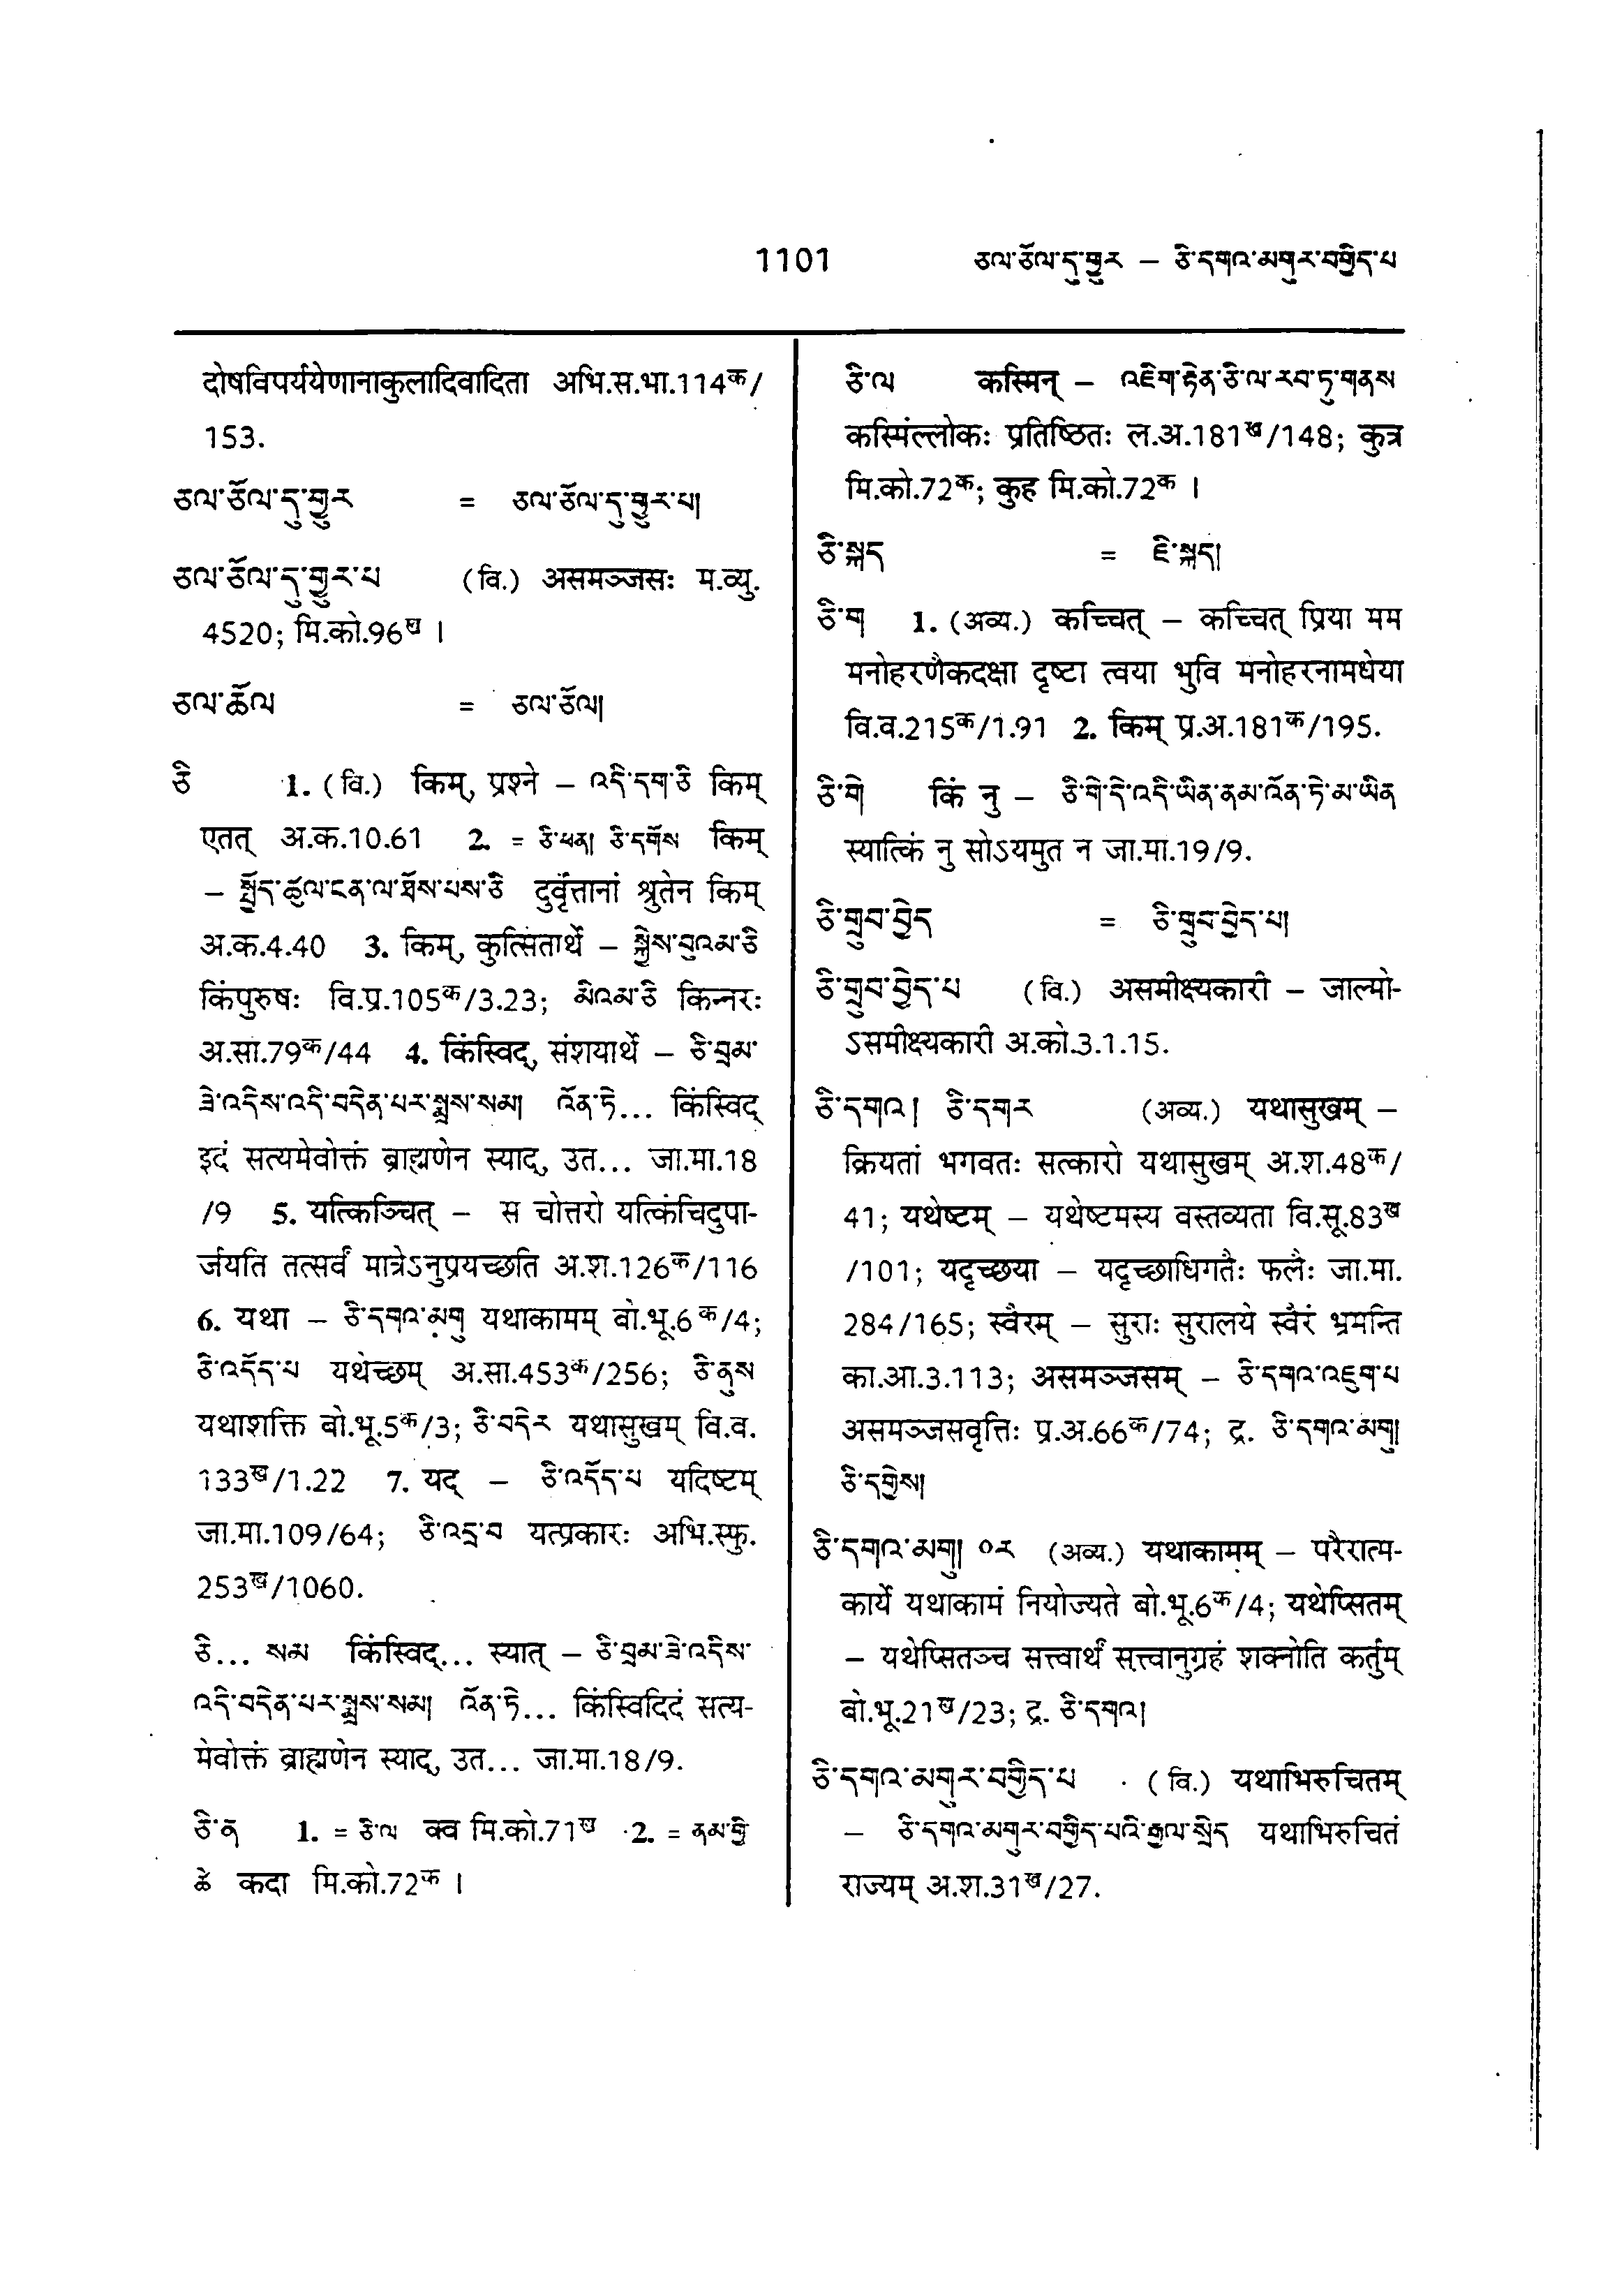 1101 ཅལ་ཅོལ་དུ་གྱུར – ཅི་དགའ་མགུར་བགྱིད་པ
दोषविपर्ययेणानाकुलादिवादिता अभि.स.भा.114क/
153.
ཅལ་ཅོལ་དུ་གྱུར = ཅལ་ཅོལ་དུ་གྱུར་པ།
ཅལ་ཅོལ་དུ་གྱུར་པ (वि.) असमञ्जसः म.व्यु.
4520; मि.को.96ख ।
ཅལ་ཆོལ = ཅལ་ཅོལ།
ཅི 1. (वि.) किम्, प्रश्ने – འདི་དག་ཅི किम्
एतत् अ.क.10.61 2. = ཅི་ཕན། ཅི་དགོས किम्
– སྤྱོད་ཚུལ་ངན་ལ་ཐོས་པས་ཅི दुर्वृत्तानां श्रुतेन किम्
अ.क.4.40 3. किम्, कुत्सितार्थे – སྐྱེས་བུའམ་ཅི
किंपुरुषः वि.प्र.105क/3.23; མིའམ་ཅི किन्नरः
अ.सा.79क/44 4. किंस्विद्, संशयार्थे – ཅི་བྲམ་
ཟེ་འདིས་འདི་བདེན་པར་སྨྲས་སམ། འོན་ཏེ... किंस्विद्
इदं सत्यमेवोक्तं ब्राह्मणेन स्याद्, उत... जा.मा.18
/9 5. यत्किञ्चित् – स चोत्तरो यत्किंचिदुपा-
र्जयति तत्सर्वं मात्रेऽनुप्रयच्छति अ.श.126क/116
6. यथा – ཅི་དགའ་མགུ यथाकामम् बो.भू.6क/4;
ཅི་འདོད་པ यथेच्छम् अ.सा.453क/256; ཅི་ནུས
यथाशक्ति बो.भू.5क/3; ཅི་བདེར यथासुखम् वि.व.
133ख/1.22 7. यद् – ཅི་འདོད་པ यदिष्टम्
जा.मा.109/64; ཅི་འདྲ་བ यत्प्रकारः अभि.स्फु.
253ख/1060.
ཅི... སམ किंस्विद्... स्यात् – ཅི་བྲམ་ཟེ་འདིས་
འདི་བདེན་པར་སྨྲས་སམ། འོན་ཏེ... किंस्विदिदं सत्य-
मेवोक्तं ब्राह्मणेन स्याद्, उत... जा.मा.18/9.
ཅི་ན 1. = ཅི་ལ क्व मि.को.71ख 2. = ནམ་གྱི
ཚེ कदा मि.को.72क ।
ཅི་ལ कस्मिन् – འཇིག་རྟེན་ཅི་ལ་རབ་ཏུ་གནས
कस्मिंल्लोकः प्रतिष्ठितः ल.अ.181ख/148; कुत्र
मि.को.72क; कुह मि.को.72क ।
ཅི་སྐད = ཇི་སྐད།
ཅི་ག 1. (अव्य.) कच्चित् – कच्चित् प्रिया मम
मनोहरणैकदक्षा दृष्टा त्वया भुवि मनोहरनामधेया
वि.व.215क/1.91 2. किम् प्र.अ.181क/195.
ཅི་གེ किं नु – ཅི་གེ་དེ་འདི་ཡིན་ནམ་འོན་ཏེ་མ་ཡིན
स्यात्किं नु सोऽयमुत न जा.मा.19/9.
ཅི་གྲུབ་བྱེད = ཅི་གྲུབ་བྱེད་པ།
ཅི་གྲུབ་བྱེད་པ (वि.) असमीक्ष्यकारी – जाल्मो-
ऽसमीक्ष्यकारी अ.को.3.1.15.
ཅི་དགའ། ཅི་དགར (अव्य.) यथासुखम् –
क्रियतां भगवतः सत्कारो यथासुखम् अ.श.48क/
41; यथेष्टम् – यथेष्टमस्य वस्तव्यता वि.सू.83ख
/101; यदृच्छया – यदृच्छाधिगतैः फलैः जा.मा.
284/165; स्वैरम् – सुराः सुरालये स्वैरं भ्रमन्ति
का.आ.3.113; असमञ्जसम् – ཅི་དགའ་འཇུག་པ
असमञ्जसवृत्तिः प्र.अ.66क/74; द्र. ཅི་དགའ་མགུ།
ཅི་དགྱེས།
ཅི་དགའ་མགུ། ०ར (अव्य.) यथाकामम् – परैरात्म-
कार्ये यथाकामं नियोज्यते बो.भू.6क/4; यथेप्सितम्
– यथेप्सितञ्च सत्त्वार्थं सत्त्वानुग्रहं शक्नोति कर्तुम्
बो.भू.21ख/23; द्र. ཅི་དགའ།
ཅི་དགའ་མགུར་བགྱིད་པ (वि.) यथाभिरुचितम्
– ཅི་དགའ་མགུར་བགྱིད་པའི་རྒྱལ་སྲིད यथाभिरुचितं
राज्यम् अ.श.31ख/27.